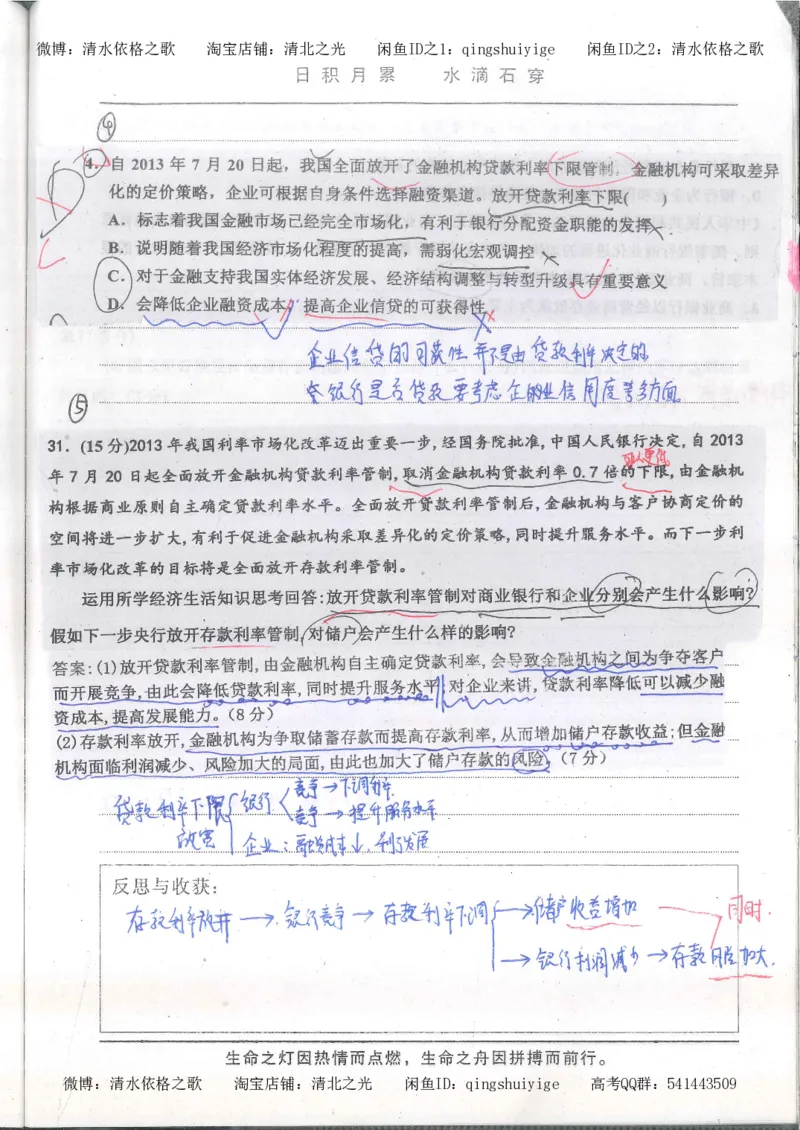 微博：清水依格之歌 淘宝店铺：清北之光 闲鱼ID之1：qingshuiyige 闲鱼ID之2：清水依格之歌
日积月累 水滴石穿
④
4. 自 2013 年 7 月 20 日起，我国全面放开了金融机构贷款利率下限管制，金融机构可采取差异
化的定价策略，企业可根据自身条件选择融资渠道。放开贷款利率下限( )
A．标志着我国金融市场已经完全市场化，有利于银行分配资金职能的发挥
B．说明随着我国经济市场化程度的提高，需弱化宏观调控
C．对于金融支持我国实体经济发展、经济结构调整与转型升级具有重要意义
D．会降低企业融资成本，提高企业信贷的可获得性
企业信贷的可获性并不是由贷款利率决定的
银行是否贷款要考虑企业信用度等多方面
⑤
31．(15 分)2013 年我国利率市场化改革迈出重要一步，经国务院批准，中国人民银行决定，自 2013
年 7 月 20 日起全面放开金融机构贷款利率管制，取消金融机构贷款利率 0.7 倍的下限，由金融机
构根据商业原则自主确定贷款利率水平。全面放开贷款利率管制后，金融机构与客户协商定价的
空间将进一步扩大，有利于促进金融机构采取差异化的定价策略，同时提升服务水平。而下一步利
率市场化改革的目标将是全面放开存款利率管制。
运用所学经济生活知识思考回答：放开贷款利率管制对商业银行和企业分别会产生什么影响？
假如下一步央行放开存款利率管制，对储户会产生什么样的影响？
答案：(1)放开贷款利率管制，由金融机构自主确定贷款利率，会导致金融机构之间为争夺客户
而开展竞争，由此会降低贷款利率，同时提升服务水平，对企业来讲，贷款利率降低可以减少融
资成本，提高发展能力。(8 分)
(2)存款利率放开，金融机构为争取储蓄存款而提高存款利率，从而增加储户存款收益；但金融
机构面临利润减少、风险加大的局面，由此也加大了储户存款的风险。(7 分)
贷款利率下限 银行 竞争→下调利率
放宽 竞争→提升服务水平
企业：融资成本↓，利于发展
反思与收获：
存款利率放开→银行竞争→存款利率下调→储户收益增加 同时.
→银行利润减少→存款风险加大.
生命之灯因热情而点燃，生命之舟因拼搏而前行。
微博：清水依格之歌 淘宝店铺：清北之光 闲鱼ID：qingshuiyige 高考QQ群：541443509